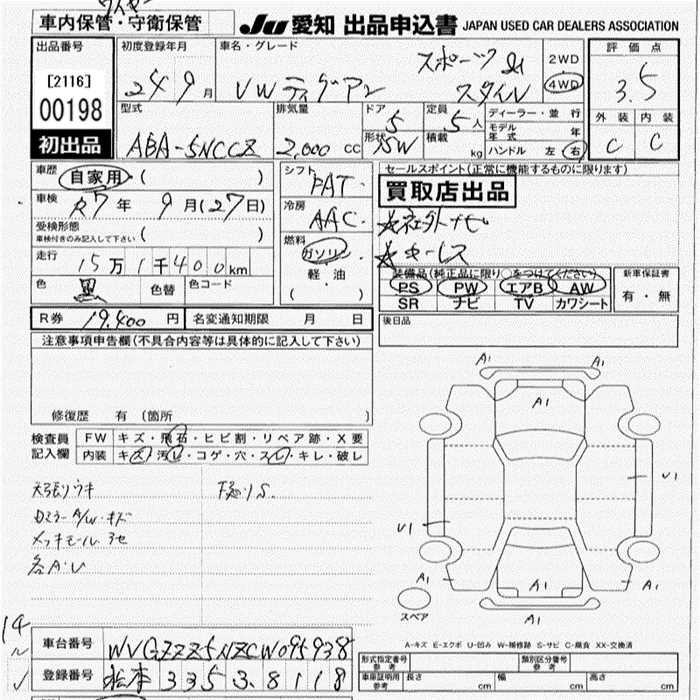 車内保管・守衛保管
JU 愛知 出品申込書 JAPAN USED CAR DEALERS ASSOCIATION
出品番号
[2116]
00198
初出品
初度登録年月
24 9月
車名・グレード
VWティグアン
スポーツ&
スタイル
2WD
4WD
評価点
3.5
外装 内装
C C
型式
ABA-5NCCZ
排気量
2,000 cc
ドア
5
形状
SW
定員
5人
積載
kg
ディーラー・並行
モデル年式 年
ハンドル 左 右
車歴
自家用 ( )
車検
R7年 9月(27日)
受検形態
車検付きのみ記入して下さい ( )
走行
15万1千400km
色
黒
色替
色コード
シフト
FAT
冷房
AAC
燃料
ガソリン
軽・油
( )
セールスポイント(正常に機能するものに限ります)
買取店出品
☆社外ナビ
装備品(純正品に限り○をつけてください)
PS PW エアB AW
SR ナビ TV カワシート
新車保証書
有・無
R券 19,400円
名変通知期限 月 日
後日品
注意事項申告欄(不具合内容等は具体的に記入して下さい)
修復歴 有 (箇所 )
検査員
記入欄
FW キズ・飛石・ヒビ割・リペア跡・X要
内装 キズ・汚レ・コゲ・穴・スレ・キレ・破レ
天張りウキ
ドアミラーA/W・キズ
メッキモール
各A・U
A1 A1
A1
U1
U1
A1 A1 A1
スペア
A1 A1
A-キズ E-エクボ U-凹み W-補修跡 S-サビ C-腐食 XX-交換済
車台番号 WVGZZZ5NZCW095938
登録番号 松本 335 3 8118
形式指定番号
参考
類別区分番号
参考
車庫証明用
参考
長さ cm
幅 cm
高さ cm